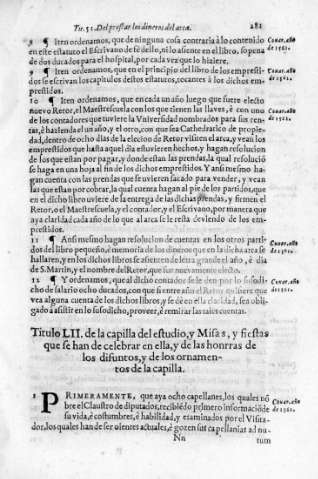 Tit. 51. Del prestar los dineros del arca. 281
9 ¶ Iten ordenamos, que de ninguna cosa contraria à lo contenido
en este estatuto el Escrivano de fè dello, ni lo asiente en el libro, so pena
de dos ducados para el hospital, por cada vez que lo hiziere.
Couar. año de 1561.
9 ¶ Iten ordenamos, que en el principio del libro de los empres-
tidos se escrivan los capitulos destos estatutos, so pena de diez ducados.
Couar. año de 1561.
10 ¶ Iten ordenamos, que en cada un año luego que fuere electo
nuevo Retor, el Maestrescuela con los que tienen las llaves, è con uno
de los contadores que tuviere la Universidad nombrados para sus ren-
tas, è hazienda el un año, y el otro, con que sea Cathedratico de propie-
dad, dentro de ocho dias de la elecion de Retor visiten el arca, y vean los
emprestidos que hasta aquel dia estuvieren hechos, y hagan resolucion
de los que estan por pagar, y donde estan las prendas, la qual resolució
se haga en una hoja al fin de los dichos emprestidos. Y ansi mesmo ha-
gan cuenta con las prendas que se uvieren sacado para vender, y vean
las que estan por cobrar, la qual cuenta hagan al pie de los partidos, que
en el dicho libro uviere de la entrega de las dichas prendas, y firmen el
Retor, o el Maestrescuela, y el contador, y el Escrivano, por manera que
aya claridad cada año de lo que al arca se le resta deviendo de los em-
prestidos.
Couar. año de 1561.
11 ¶ Ansi mesmo hagan resolucion de cuentas en los otros parti-
dos del libro pequeño, è memoria de los dineros que en la dicha arca se
hallaren, y en los dichos libros se asienten de letra grande el año, è dia
de S. Martin, y el nombre del Retor, que fue nuevamente electo.
Couar. año de 1561.
12 ¶ Y ordenamos, que al dicho contador se le den por lo susodi-
cho de salario ocho ducados, con que si entre año el Retor quisiere que
vea alguna cuenta de los dichos libros, y se dè en ella claridad, sea obli-
gado à asistir en lo susodicho, proveer, è rematar las tales cuentas.
Couar. año de 1561.
Titulo LII. de la capilla del estudio, y Misas, y fiestas
que se han de celebrar en ella, y de las honrras de
los difuntos, y de los ornamen-
tos de la capilla.
1 PRIMERAMENTE, que aya ocho capellanes, los quales nō
bre el Claustro de diputados, recibiēdo primero informació de
su vida, è costumbres, è habilidad, y examinados por el Visita-
dor, los quales han de ser oientes actuales, è gozen sus capellanias ad nu-
Couar. año de 1561.
Nn tum